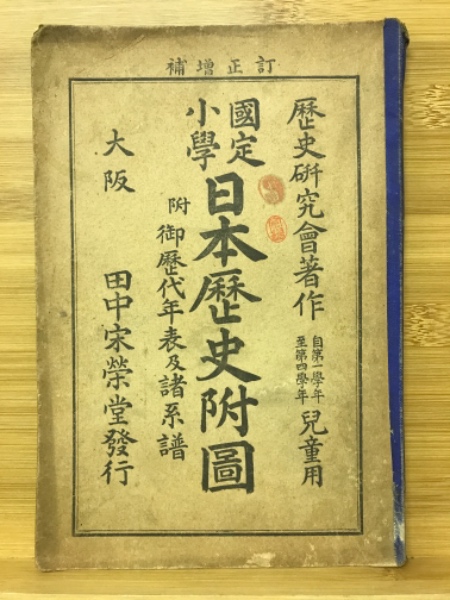 訂正增補
歷史硏究會著作
自第一學年
至第四學年
兒童用
國定
小學
日本歷史附圖
附御歷代年表及諸系譜
大阪
田中宋榮堂發行